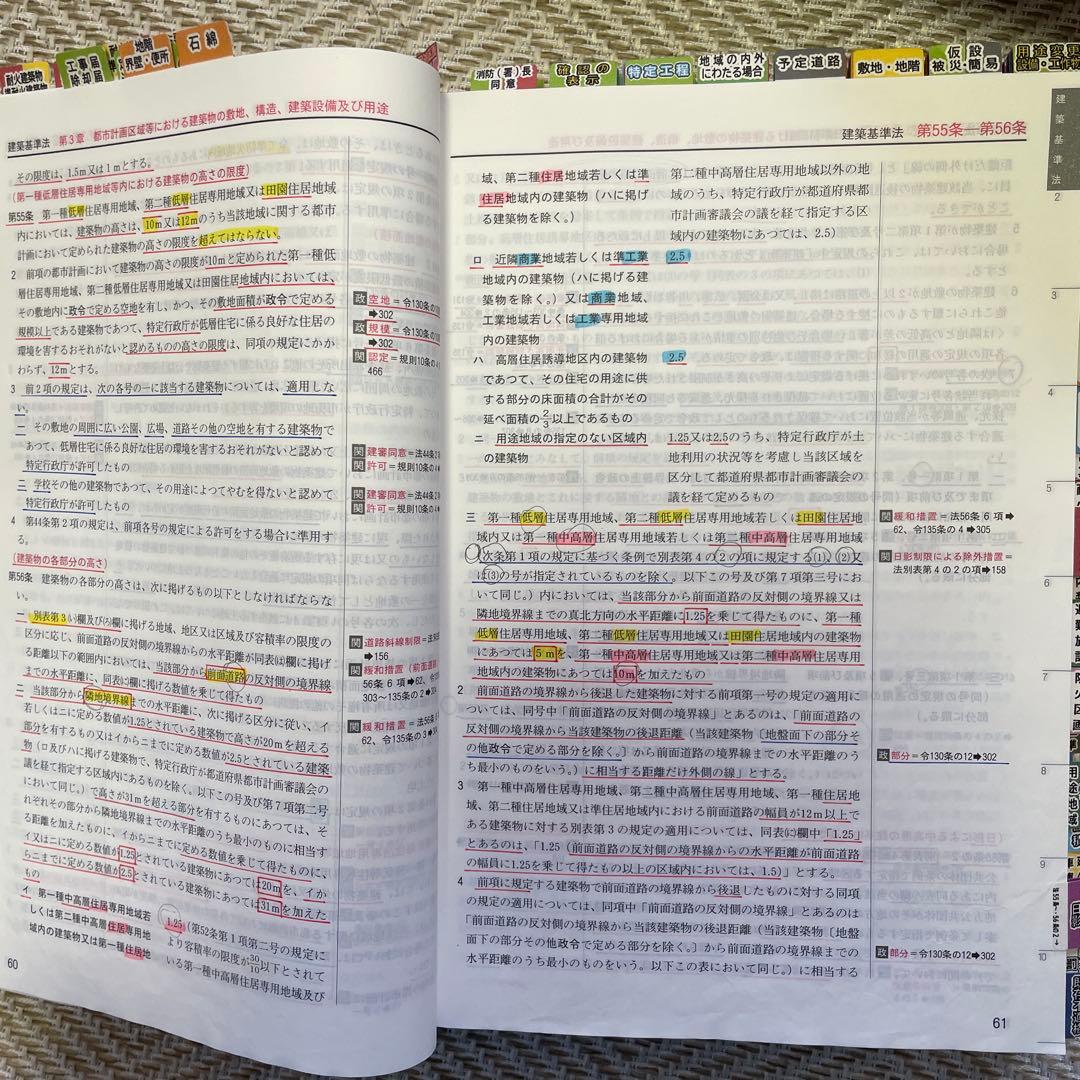 耐火建築物
準耐火建築物
工事届
除却届
地階
界壁・便所
石綿
消防(署)長
同意
確認の
表示
特定工程
地域の内外
にわたる場合
予定道路
敷地・地階
仮設
被災・簡易
用途変更
設備・工作物
建築基準法 第3章 都市計画区域等における建築物の敷地、構造、建築設備及び用途
その限度は、1.5m又は1mとする。
(第一種低層住居専用地域等内における建築物の高さの限度)
第55条 第一種低層住居専用地域、第二種低層住居専用地域又は田園住居地域
内においては、建築物の高さは、10m又は12mのうち当該地域に関する都市
計画において定められた建築物の高さの限度を超えてはならない。
2 前項の都市計画において建築物の高さの限度が10mと定められた第一種低
層住居専用地域、第二種低層住居専用地域又は田園住居地域内においては、
その敷地内に政令で定める空地を有し、かつ、その敷地面積が政令で定める
規模以上である建築物であつて、特定行政庁が低層住宅に係る良好な住居の
環境を害するおそれがないと認めるものの高さの限度は、同項の規定にかか
わらず、12mとする。
3 前2項の規定は、次の各号の一に該当する建築物については、適用しな
い。
一 その敷地の周囲に広い公園、広場、道路その他の空地を有する建築物で
あつて、低層住宅に係る良好な住居の環境を害するおそれがないと認めて
特定行政庁が許可したもの
二 学校その他の建築物であつて、その用途によつてやむを得ないと認めて
特定行政庁が許可したもの
4 第44条第2項の規定は、前項各号の規定による許可をする場合に準用す
る。
(建築物の各部分の高さ)
第56条 建築物の各部分の高さは、次に掲げるもの以下としなければならな
い。
一 別表第3(い)欄及び(ろ)欄に掲げる地域、地区又は区域及び容積率の限度の
区分に応じ、前面道路の反対側の境界線からの水平距離が同表(は)欄に掲げ
る距離以下の範囲内においては、当該部分から前面道路の反対側の境界線
までの水平距離に、同表(に)欄に掲げる数値を乗じて得たもの
二 当該部分から隣地境界線までの水平距離に、次に掲げる区分に従い、イ
若しくはニに定める数値が1.25とされている建築物で高さが20mを超える
部分を有するもの又はイからニまでに定める数値が2.5とされている建築
物(ロ及びハに掲げる建築物で、特定行政庁が都道府県都市計画審議会の
議を経て指定する区域内にあるものを除く。以下この号及び第7項第二号
において同じ。)で高さが31mを超える部分を有するものにあつては、そ
れぞれその部分から隣地境界線までの水平距離のうち最小のものに相当す
る距離を加えたものに、イからニまでに定める数値を乗じて得たものに、
イ又はニに定める数値が1.25とされている建築物にあつては20mを、イか
らニまでに定める数値が2.5とされている建築物にあつては31mを加えた
もの
イ 第一種中高層住居専用地域若
しくは第二種中高層住居専用地
域内の建築物又は第一種住居地
1.25(第52条第1項第二号の規定に
より容積率の限度が30/10以下とされて
いる第一種中高層住居専用地域及び
政 空地=令130条の
➡302
政 規模=令130条の
➡302
関 認定=規則10条の4
466
関 建審同意=法44条2
関 許可=規則10条の4
関 建審同意=法44条2
関 許可=規則10条の4
関 道路斜線制限=法
➡156
関 緩和措置(前面道路
56条6項➡62、令
303~135条の2➡304
関 緩和措置=法56条6
62、令135条の3➡304
60
建築基準法 第55条―第56条
域、第二種住居地域若しくは準
住居地域内の建築物(ハに掲げ
る建築物を除く。)
第二種中高層住居専用地域以外の地
域のうち、特定行政庁が都道府県都
市計画審議会の議を経て指定する区
域内の建築物にあつては、2.5)
ロ 近隣商業地域若しくは準工業
地域内の建築物(ハに掲げる建
築物を除く。)又は商業地域、
工業地域若しくは工業専用地域
内の建築物
2.5
ハ 高層住居誘導地区内の建築物
であつて、その住宅の用途に供
する部分の床面積の合計がその
延べ面積の2/3以上であるもの
2.5
ニ 用途地域の指定のない区域内
の建築物
1.25又は2.5のうち、特定行政庁が土
地利用の状況等を考慮し当該区域を
区分して都道府県都市計画審議会の
議を経て定めるもの
三 第一種低層住居専用地域、第二種低層住居専用地域若しくは田園住居地
域内又は第一種中高層住居専用地域若しくは第二種中高層住居専用地域
(次条第1項の規定に基づく条例で別表第4の2の項に規定する(1)、(2)又
は(3)の号が指定されているものを除く。以下この号及び第7項第三号にお
いて同じ。)内においては、当該部分から前面道路の反対側の境界線又は
隣地境界線までの真北方向の水平距離に1.25を乗じて得たものに、第一種
低層住居専用地域、第二種低層住居専用地域又は田園住居地域内の建築物
にあつては5mを、第一種中高層住居専用地域又は第二種中高層住居専用
地域内の建築物にあつては10mを加えたもの
2 前面道路の境界線から後退した建築物に対する前項第一号の規定の適用に
ついては、同号中「前面道路の反対側の境界線」とあるのは、「前面道路の
反対側の境界線から当該建築物の後退距離(当該建築物〔地盤面下の部分そ
の他政令で定める部分を除く。〕から前面道路の境界線までの水平距離のう
ち最小のものをいう。)に相当する距離だけ外側の線」とする。
3 第一種中高層住居専用地域、第二種中高層住居専用地域、第一種住居地
域、第二種住居地域又は準住居地域内における前面道路の幅員が12m以上で
ある建築物に対する別表第3の規定の適用については、同表(に)欄中「1.25」
とあるのは、「1.25(前面道路の反対側の境界線からの水平距離が前面道路
の幅員に1.25を乗じて得たもの以上の区域内においては、1.5)」とする。
4 前項に規定する建築物で前面道路の境界線から後退したものに対する同項
の規定の適用については、同項中「前面道路の反対側の境界線」とあるのは
「前面道路の反対側の境界線から当該建築物の後退距離(当該建築物〔地盤
面下の部分その他政令で定める部分を除く。〕から前面道路の境界線までの
水平距離のうち最小のものをいう。以下この表において同じ。)に相当する
関 緩和措置=法56条6項➡
62、令135条の4➡305
関 日影制限による除外措置=
法別表第4の2の項➡158
政 部分=令130条の12➡302
政 部分=令130条の12➡302
61
建築基準法
2
3
4
5
6
7
8
9
10